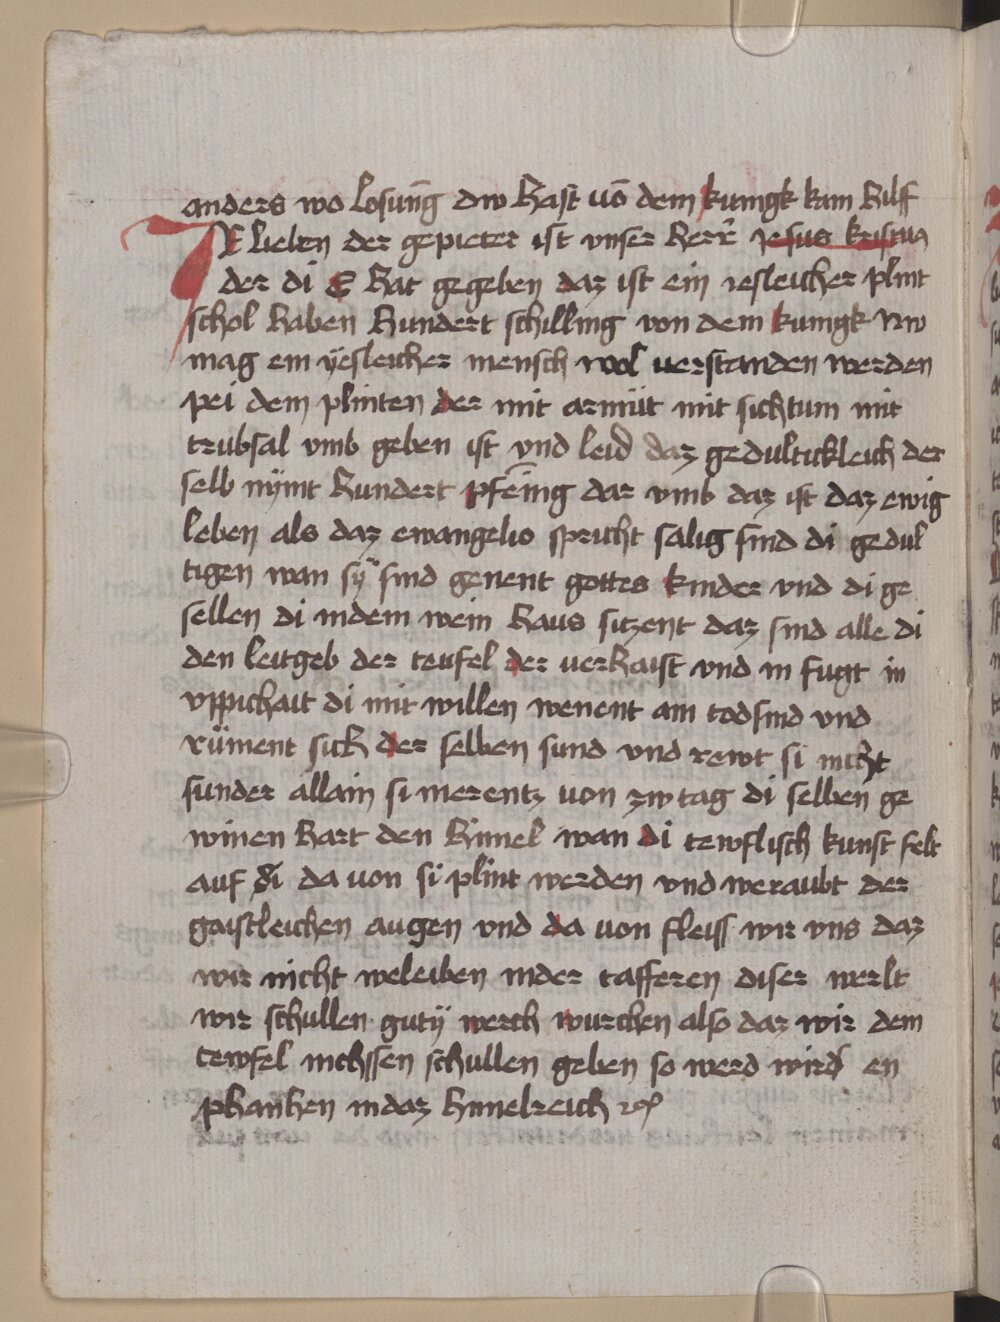 anders wo losung̅ dw hast vō dem kunigk kain hilff
IR lieben der gepieter ist vnser herr̄ jesus kristus
der di E hat gegeben daz ist ein iesleicher plint
schol haben hundert schilling von dem kunigk Nw
mag ein yesleicher mensch wol verstanden werden
pei dem plinten der mit armüt mit sichtum mit
trubsal vmb geben ist vnd leid daz gedultickleich der
selb nÿmt hundert pfēnig dar vmb daz ist daz ewig
leben als daz ewangelio spricht salig sind di gedul
tigen wan sÿ sind genent gottes kinder vnd di ge
sellen di indem wein haus sitzent daz sind alle di
den leitgeb der teufel der verhaist vnd in fugt in
vppichait di mit willen wenent am todsind vnd
rüment sich der selben sund vnd rewt si nicht
sunder allain si merentz von zw tag di selben ge
winen hart den himel wan di tewflisch kunst felt
auf di da von si plint werden vnd weraubt der
gaistleichen augen vnd da von fleiss wir vns daz
wir nicht weleiben inder tafferen diser werlt
wir schullen gutÿ werch wurchen also daz wir dem
tewfel nichssen schullen geben so werd wird en
phanhen indaz himelreich